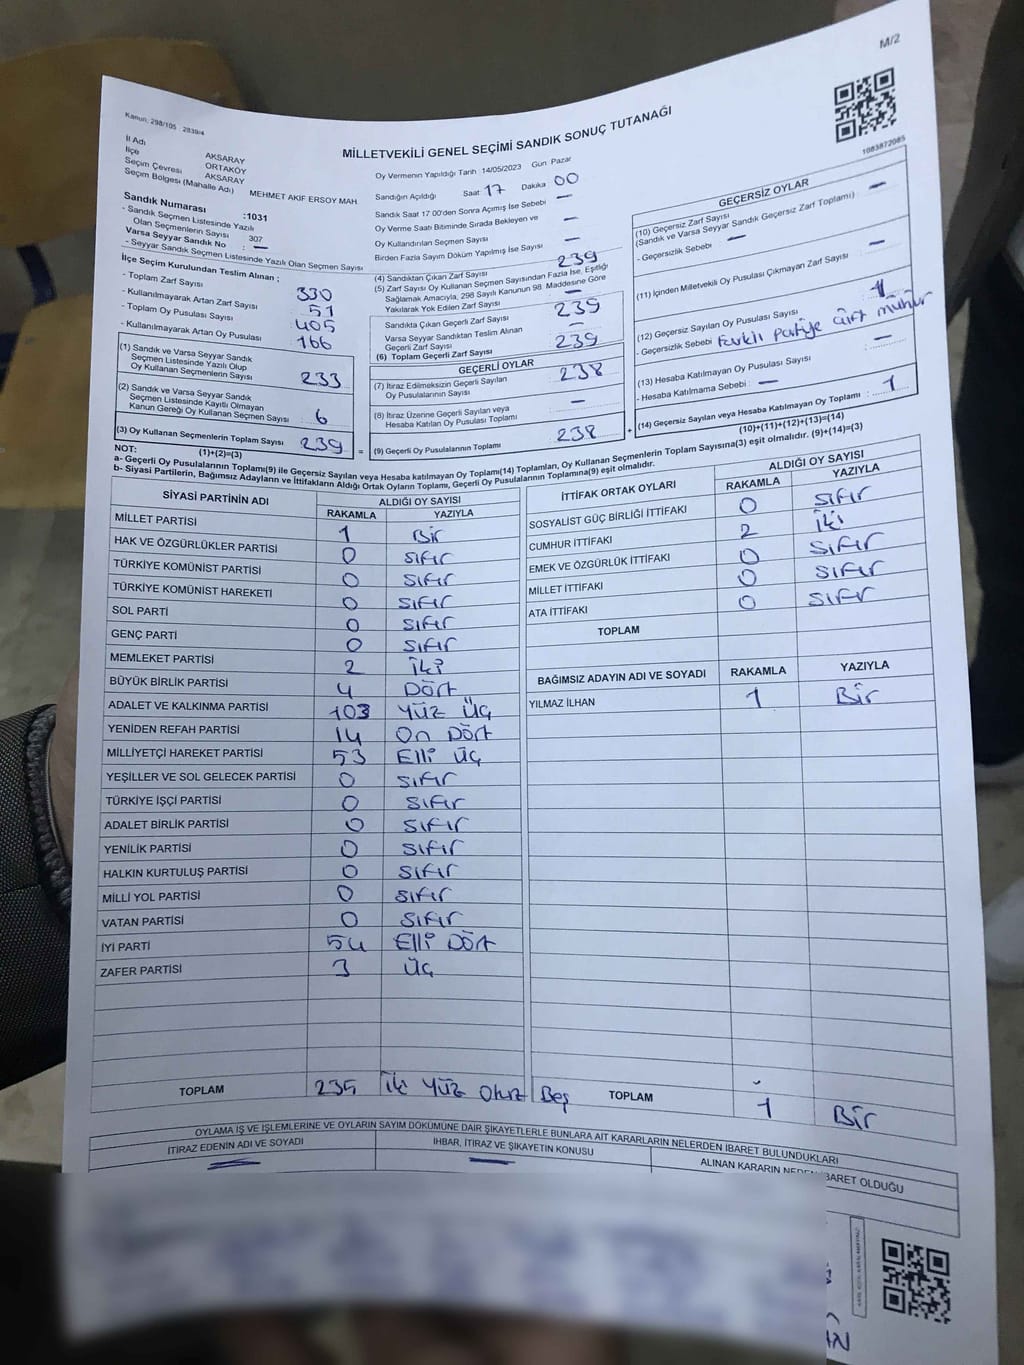 M/2
Kanun, 298/105 2839/4
MİLLETVEKİLİ GENEL SEÇİMİ SANDIK SONUÇ TUTANAĞI
1083872085
İl Adı AKSARAY
İlçe ORTAKÖY
Seçim Çevresi AKSARAY
Seçim Bölgesi (Mahalle Adı) MEHMET AKİF ERSOY MAH.
Sandık Numarası :1031
- Sandık Seçmen Listesinde Yazılı
Olan Seçmenlerin Sayısı 307
Varsa Seyyar Sandık No : —
- Seyyar Sandık Seçmen Listesinde Yazılı Olan Seçmen Sayısı
İlçe Seçim Kurulundan Teslim Alınan ;
- Toplam Zarf Sayısı 330
- Kullanılmayarak Artan Zarf Sayısı : 51
- Toplam Oy Pusulası Sayısı 405
- Kullanılmayarak Artan Oy Pusulası 166
(1) Sandık ve Varsa Seyyar Sandık
Seçmen Listesinde Yazılı Olup
Oy Kullanan Seçmenlerin Sayısı 233
(2) Sandık ve Varsa Seyyar Sandık
Seçmen Listesinde Kayıtlı Olmayan
Kanun Gereği Oy Kullanan Seçmen Sayısı : 6
(3) Oy Kullanan Seçmenlerin Toplam Sayısı 239
(1)+(2)=(3)
Oy Vermenin Yapıldığı Tarih 14/05/2023 Gün Pazar
Sandığın Açıldığı Saat 17 Dakika 00
Sandık Saat 17.00'den Sonra Açımış İse Sebebi —
Oy Verme Saati Bitiminde Sırada Bekleyen ve
Oy Kullandırılan Seçmen Sayısı —
Birden Fazla Sayım Döküm Yapılmış İse Sayısı —
(4) Sandıktan Çıkan Zarf Sayısı 239
(5) Zarf Sayısı Oy Kullanan Seçmen Sayısından Fazla İse, Eşitliği
Sağlamak Amacıyla, 298 Sayılı Kanunun 98. Maddesine Göre
Yakılarak Yok Edilen Zarf Sayısı —
Sandıkta Çıkan Geçerli Zarf Sayısı 239
Varsa Seyyar Sandıktan Teslim Alınan
Geçerli Zarf Sayısı —
(6) Toplam Geçerli Zarf Sayısı 239
GEÇERLİ OYLAR
(7) İtiraz Edilmeksizin Geçerli Sayılan
Oy Pusulalarının Sayısı 238
(8) İtiraz Üzerine Geçerli Sayılan veya
Hesaba Katılan Oy Pusulası Toplamı —
= (9) Geçerli Oy Pusulalarının Toplamı 238 +
GEÇERSİZ OYLAR
(10) Geçersiz Zarf Sayısı
(Sandık ve Varsa Seyyar Sandık Geçersiz Zarf Toplamı) : —
- Geçersizlik Sebebi : —
(11) İçinden Milletvekili Oy Pusulası Çıkmayan Zarf Sayısı —
(12) Geçersiz Sayılan Oy Pusulası Sayısı 1
- Geçersizlik Sebebi farklı partiye çift mühür
(13) Hesaba Katılmayan Oy Pusulası Sayısı —
- Hesaba Katılmama Sebebi : —
(14) Geçersiz Sayılan veya Hesaba Katılmayan Oy Toplamı : 1
(10)+(11)+(12)+(13)=(14)
NOT:
a- Geçerli Oy Pusulalarının Toplamı(9) ile Geçersiz Sayılan veya Hesaba Katılmayan Oy Toplamı(14) Toplamları, Oy Kullanan Seçmenlerin Toplam Sayısına(3) eşit olmalıdır. (9)+(14)=(3)
b- Siyasi Partilerin, Bağımsız Adayların ve İttifakların Aldığı Ortak Oyların Toplamı, Geçerli Oy Pusulalarının Toplamına(9) eşit olmalıdır.
SİYASİ PARTİNİN ADI ALDIĞI OY SAYISI
RAKAMLA YAZIYLA
MİLLET PARTİSİ 1 Bir
HAK VE ÖZGÜRLÜKLER PARTİSİ 0 sıfır
TÜRKİYE KOMÜNİST PARTİSİ 0 sıfır
TÜRKİYE KOMÜNİST HAREKETİ 0 sıfır
SOL PARTİ 0 sıfır
GENÇ PARTİ 0 sıfır
MEMLEKET PARTİSİ 2 İki
BÜYÜK BİRLİK PARTİSİ 4 Dört
ADALET VE KALKINMA PARTİSİ 103 Yüz Üç
YENİDEN REFAH PARTİSİ 14 On Dört
MİLLİYETÇİ HAREKET PARTİSİ 53 Elli Üç
YEŞİLLER VE SOL GELECEK PARTİSİ 0 sıfır
TÜRKİYE İŞÇİ PARTİSİ 0 sıfır
ADALET BİRLİK PARTİSİ 0 sıfır
YENİLİK PARTİSİ 0 sıfır
HALKIN KURTULUŞ PARTİSİ 0 sıfır
MİLLİ YOL PARTİSİ 0 sıfır
VATAN PARTİSİ 0 sıfır
İYİ PARTİ 54 Elli Dört
ZAFER PARTİSİ 3 Üç
TOPLAM 235 İki Yüz Otuz Beş
İTTİFAK ORTAK OYLARI ALDIĞI OY SAYISI
RAKAMLA YAZIYLA
SOSYALİST GÜÇ BİRLİĞİ İTTİFAKI 0 sıfır
CUMHUR İTTİFAKI 2 İki
EMEK VE ÖZGÜRLÜK İTTİFAKI 0 sıfır
MİLLET İTTİFAKI 0 sıfır
ATA İTTİFAKI 0 sıfır
TOPLAM
BAĞIMSIZ ADAYIN ADI VE SOYADI RAKAMLA YAZIYLA
YILMAZ İLHAN 1 Bir
TOPLAM 1 Bir
OYLAMA İŞ VE İŞLEMLERİNE VE OYLARIN SAYIM DÖKÜMÜNE DAİR ŞİKAYETLERLE BUNLARA AİT KARARLARIN NELERDEN İBARET BULUNDUKLARI
İTİRAZ EDENİN ADI VE SOYADI İHBAR, İTİRAZ VE ŞİKAYETİN KONUSU ALINAN KARARIN NEDEN İBARET OLDUĞU
— —